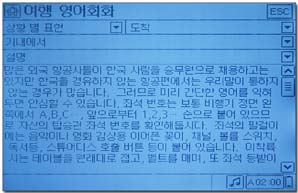 여행 영어회화 ESC
상황 별 표현 도착
기내에서
설명
많은 외국 항공사들이 한국 사람을 승무원으로 채용하고는
있지만 한국을 경유하지 않는 항공편에서는 우리말이 통하지
않는 경우가 많습니다. 그러므로 미리 간단한 영어를 익혀
두면 안심할 수 있습니다. 좌석 번호는 보통 비행기 정면 왼
쪽에서 A,B,C‥, 앞으로부터 1,2,3‥ 순으로 붙어 있으므
로 자신의 탑승권 좌석 번호를 확인해둡시다. 좌석의 팔걸이
에는 음악이나 영화 감상용 이어폰 꽂이, 채널, 볼륨 스위치,
독서등, 스튜어디스 호출 버튼 등이 붙어 있습니다. 이착륙
시는 테이블을 원래대로 접고, 벨트를 매며, 또 좌석 등받이
A 02:00